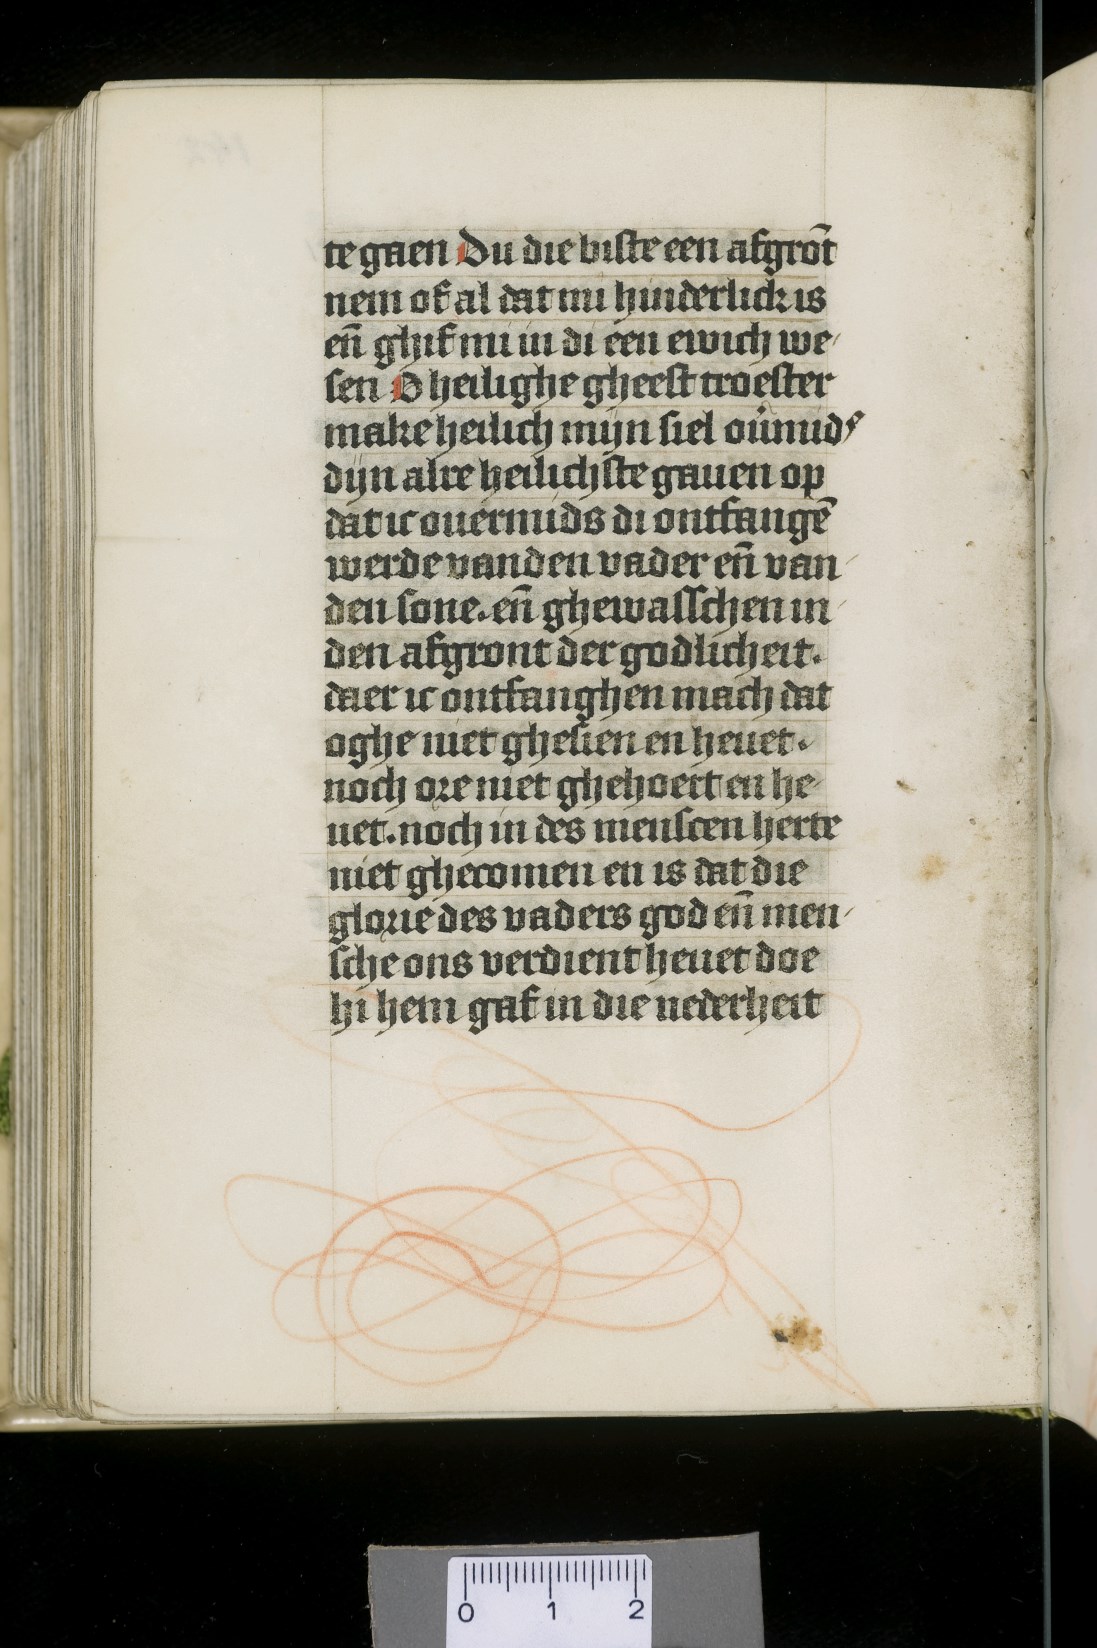 te gaen Du die biste een afgrōt
nem of al dat mi hinderlick is
en̄ ghif mi in di een ewich we-
sen O heilighe gheest troester
make heilich mijn siel ou͛mids
dijn alre heilichste gauen op
dat ic ouermids di ontfangē
werde vanden vader en̄ van-
den sone. en̄ ghewasschen in-
den afgront der godlicheit.
daer ic ontfanghen mach dat
oghe niet ghesien en heuet.
noch ore niet ghehoert en he-
uet. noch in des menscen herte
niet ghecomen en is dat die
glorie des vaders god en̄ men-
sche ons verdient heuet doe
hi hem gaf in die nederheit
0 1 2